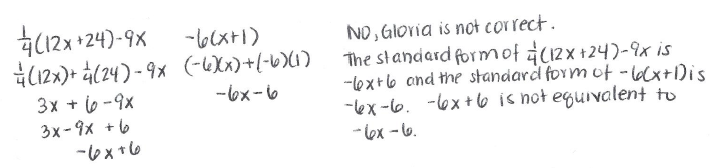 1/4(12x+24)-9x
1/4(12x)+1/4(24)-9x
3x+6-9x
3x-9x+6
-6x+6
-6(x+1)
(-6)(x)+(-6)(1)
-6x-6
NO, Gloria is not correct.
The standard form of 1/4(12x+24)-9x is
-6x+6 and the standard form of -6(x+1) is
-6x-6. -6x+6 is not equivalent to
-6x-6.